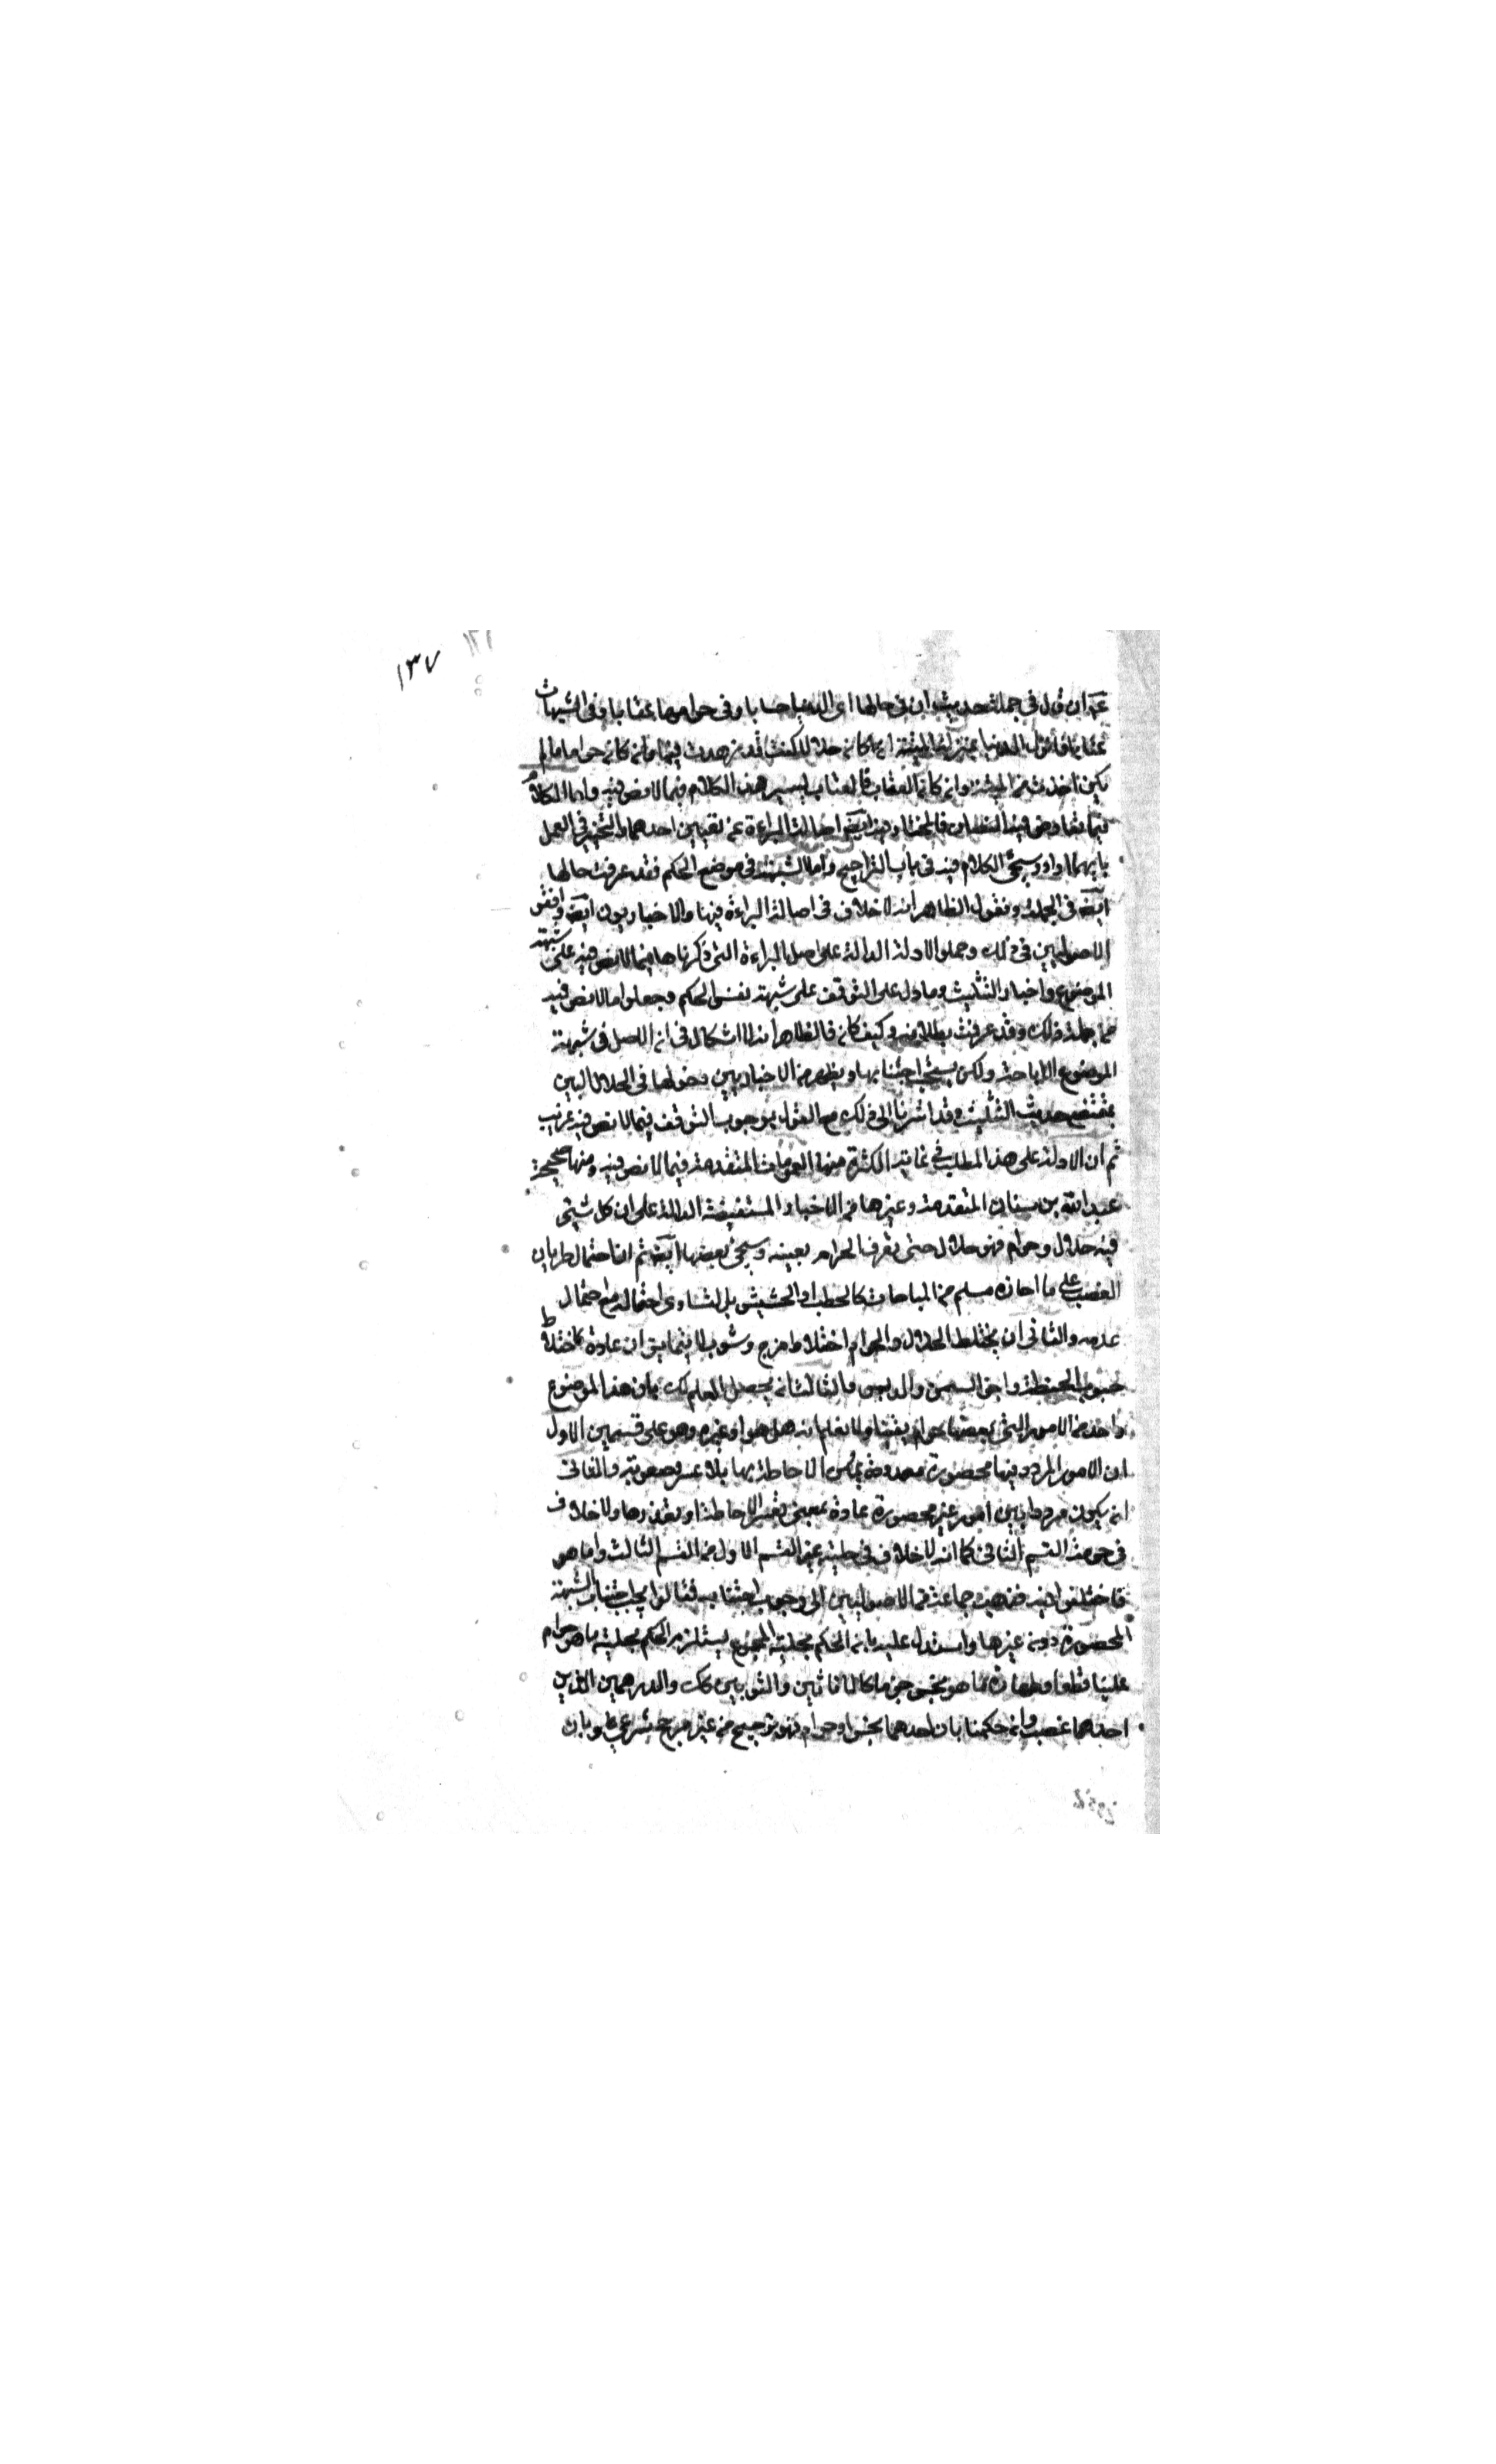 ١٣٧
عم ان قال في جملة حديث ان في حلالها اى الدنيا حسابا وفى حرامها عقابا وفى الشبهات
عتابا فانزل الدنيا بمنزلة الميتة ان كان حلالا كنت قد زهدت فيها وان كان حراما لم
يكن اخذت من الميتة وان كان العتاب فالعتاب يسير هذا الكلام فيما لا نص فيه واما الكلام
فيما تعارض فيه النصان فالمختار فيه ايضا اصالة البراءة عن تعيين احدهما والتخيير في العمل
بايهما اراد وسيجئ الكلام فيه فى باب التراجيح واما الشبهة فى موضع الحكم فقد عرفت حالها
ايض فى الجملة ونقول الظاهر انه لا خلاف فى اصالة البراءة فيها والاخباريون ايض وافق
الاصوليين فى ذلك وحملوا الادلة الدالة على اصل البراءة التى ذكرناها فيما لا نص فيه على شبهة
الموضوع واخبار التثليث وما دل على التوقف على شبهة نفس الحكم وجعلوا ما لا نص فيه
من جملة ذلك وقد عرفت بطلانه وكيف كان فالظاهر انه لا اشكال فى ان الاصل فى شبهة
الموضوع الاباحة ولكن يستحب اجتنابها ويظهر من الاخباريين دخولها فى الحلال البين
بمقتضى حديث التثليث وقد اشرنا الى ذلك مع القول بوجوب التوقف فيما لا نص فيه غريب
ثم ان الادلة على هذا المطلب فى غاية الكثرة منها العمومات المتقدمة فيما لا نص فيه ومنها صحيحة
عبد الله بن سنان المتقدمة وغيرها من الاخبار المستفيضة الدالة على ان كل شيئ
فيه حلال وحرام فهو حلال حتى تعرف الحرام بعينه وسيجئ بعضها ايض ثم ان احتمال طريان
الغصب على ما احازه مسلم من المباحات كالحطب والحشيش بل لتساوى احتماله مع احتمال
عدمه والثانى ان يختلط الحلال والحرام اختلاط مزج وشوب لا يتمايزان عادة كاختلاط
حبوب الحنطة واجزاء السمن والدبس والثالث ان يحصل العلم لك بان هذا الموضوع
واحد من الامور التى بعضها حرام يقينا ولا تعلم انه هل هو او غيره وهو على قسمين الاول
ان الامور المردد فيها محصورة معدودة يمكن الاحاطة بها بلا عسر وصعوبة والثانى
ان يكون مرددا بين امور غير محصورة عادة بمعنى تعسر الاحاطة او تعذرها ولا خلاف
فى حرمة القسم الثانى كما انه لا خلاف فى حلية غير القسم الاول من القسم الثالث واما هو
فاختلفوا فيه فذهب جماعة من الاصوليين الى وجوب اجتنابه فقالوا يجب اجتناب الشبهة
المحصورة دون غيرها واستدل عليه بان الحكم بحلية المجموع يستلزم الحكم بحلية ما هو حرام
علينا قطعا وطهارة ما هو نجس جزما كالانائين والثوبين كك والدرهمين الذين
احدهما غصب وان حكمنا بان احدهما نجس او حرام فهو ترجيح من غير مرجح شرعي وبان